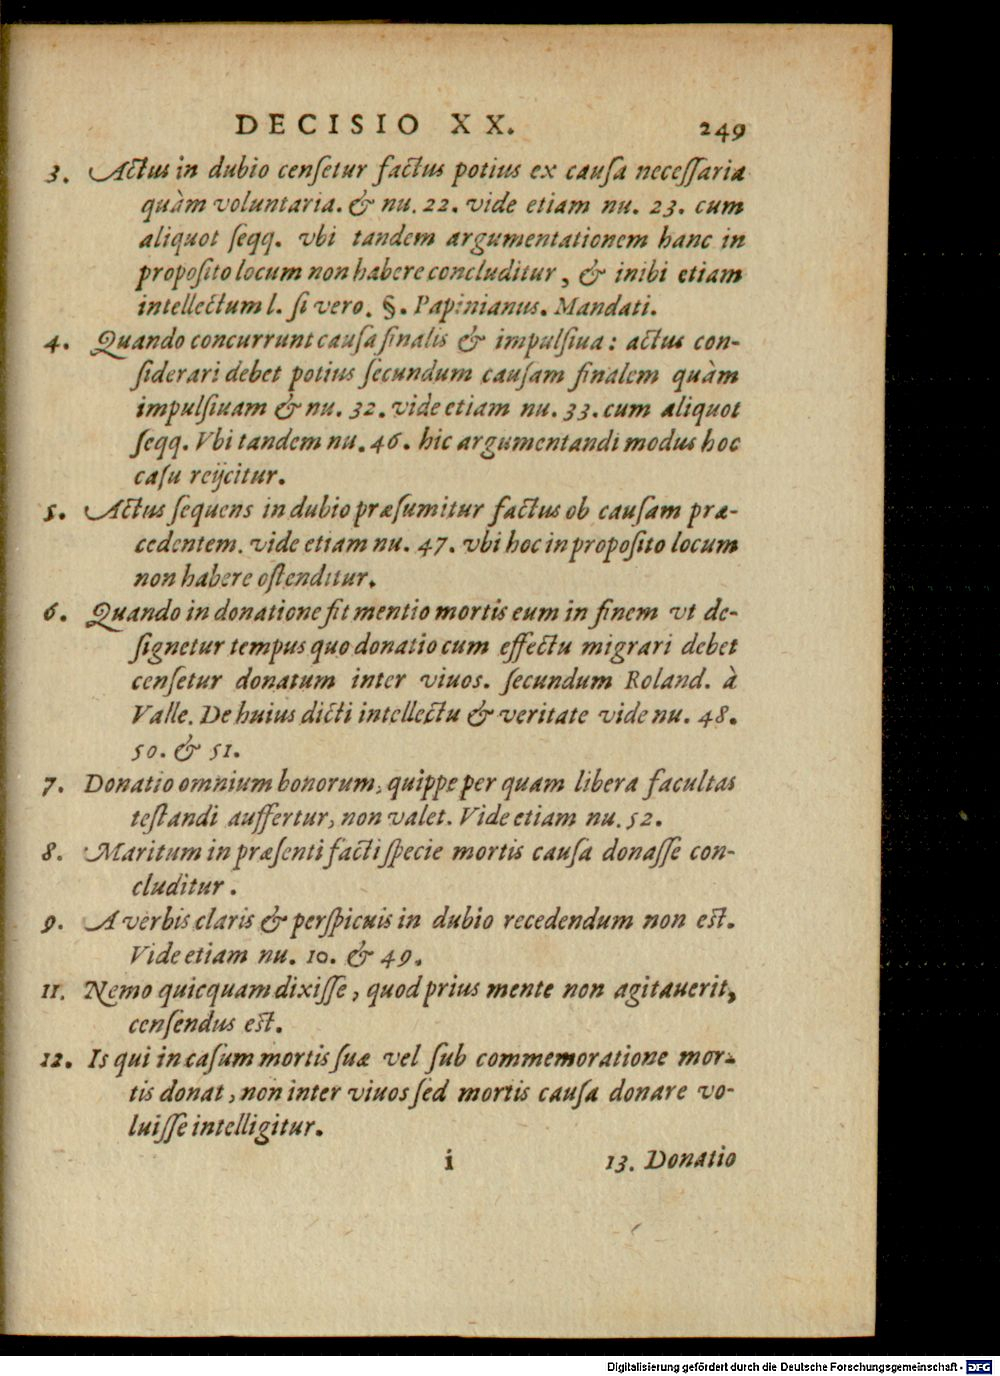 DECISIO XX. 249
3. Actus in dubio censetur factus potius ex causa necessaria
quàm voluntaria. & nu. 22. vide etiam nu. 23. cum
aliquot seqq. vbi tandem argumentationem hanc in
proposito locum non habere concluditur, & inibi etiam
intellectum l. si vero. §. Papinianus. Mandati.
4. Quando concurrunt causa finalis & impulsiua: actus con-
siderari debet potius secundum causam finalem quàm
impulsiuam & nu. 32. vide etiam nu. 33. cum aliquot
seqq. Vbi tandem nu. 46. hic argumentandi modus hoc
casu reijcitur.
5. Actus sequens in dubio præsumitur factus ob causam præ-
cedentem. vide etiam nu. 47. vbi hoc in proposito locum
non habere ostenditur.
6. Quando in donatione fit mentio mortis eum in finem vt de-
signetur tempus quo donatio cum effectu migrari debet
censetur donatum inter viuos. secundum Roland. à
Valle. De huius dicti intellectu & veritate vide nu. 48.
50. & 51.
7. Donatio omnium bonorum, quippe per quam libera facultas
testandi auffertur, non valet. Vide etiam nu. 52.
8. Maritum in præsenti facti specie mortis causa donasse con-
cluditur.
9. A verbis claris & perspicuis in dubio recedendum non est.
Vide etiam nu. 10. & 49.
11. Nemo quicquam dixisse, quod prius mente non agitauerit,
censendus est.
12. Is qui in casum mortis suæ vel sub commemoratione mor-
tis donat, non inter viuos sed mortis causa donare vo-
luisse intelligitur.
i 13. Donatio
Digitalisierung gefördert durch die Deutsche Forschungsgemeinschaft - DFG